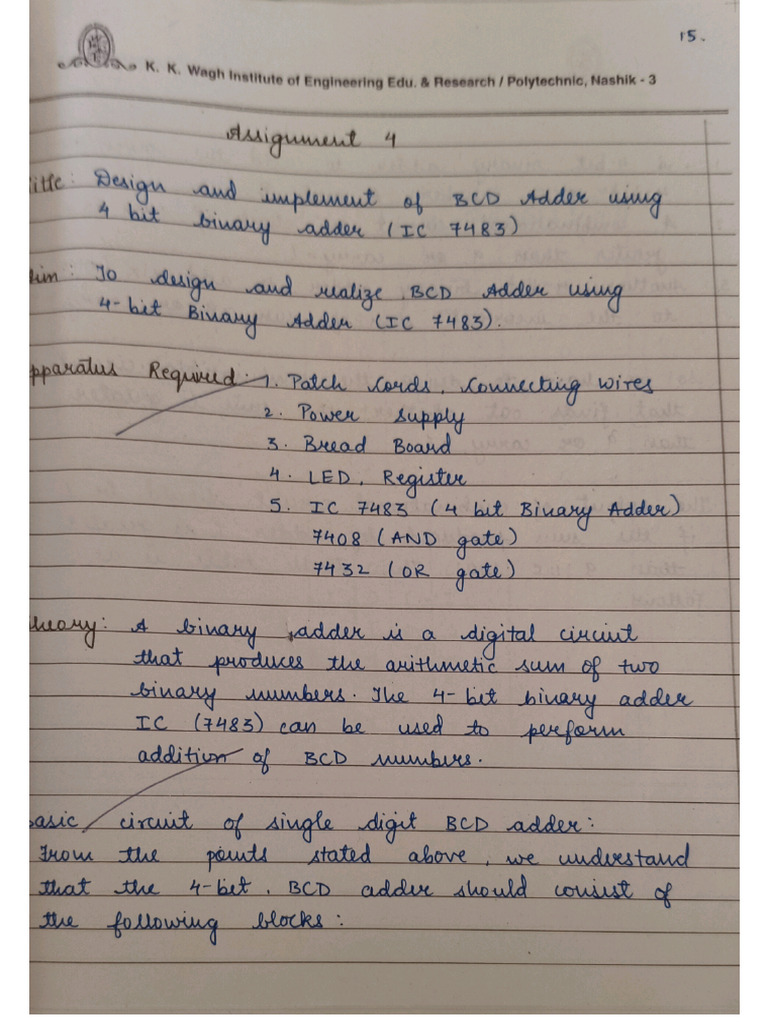 15.
K. K. Wagh Institute of Engineering Edu. & Research / Polytechnic, Nashik - 3
Assignment 4
itle: Design and implement of BCD Adder using
4 bit binary adder (IC 7483)
im: To design and realize BCD Adder using
4-bit Binary Adder (IC 7483).
pparatus Required: 1. Patch Cords, Connecting Wires
2. Power Supply
3. Bread Board
4. LED, Register
5. IC 7483 (4 bit Binary Adder)
7408 (AND gate)
7432 (OR gate)
heory: A binary adder is a digital circuit
that produces the arithmetic sum of two
binary numbers. The 4-bit binary adder
IC (7483) can be used to perform
addition of BCD numbers.
asic circuit of single digit BCD adder:
From the points stated above, we understand
that the 4-bit, BCD adder should consist of
the following blocks: